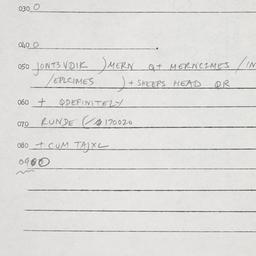 030 0
040 0
050 JONT3VDIK ) MERN Q+ MERNCIMES / IN
/EPLCIMES ) + SHEEPS HEAD OR
060 + QDEFINITELY
070 RUNDE ( / 170020
080 + CUM TAJXL